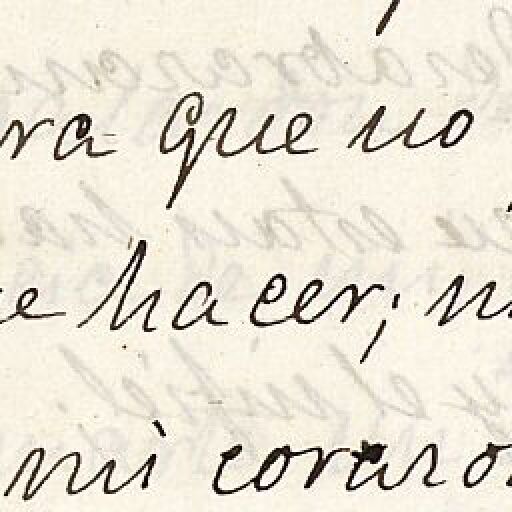 ra que no
e hacer; m
mi corazo